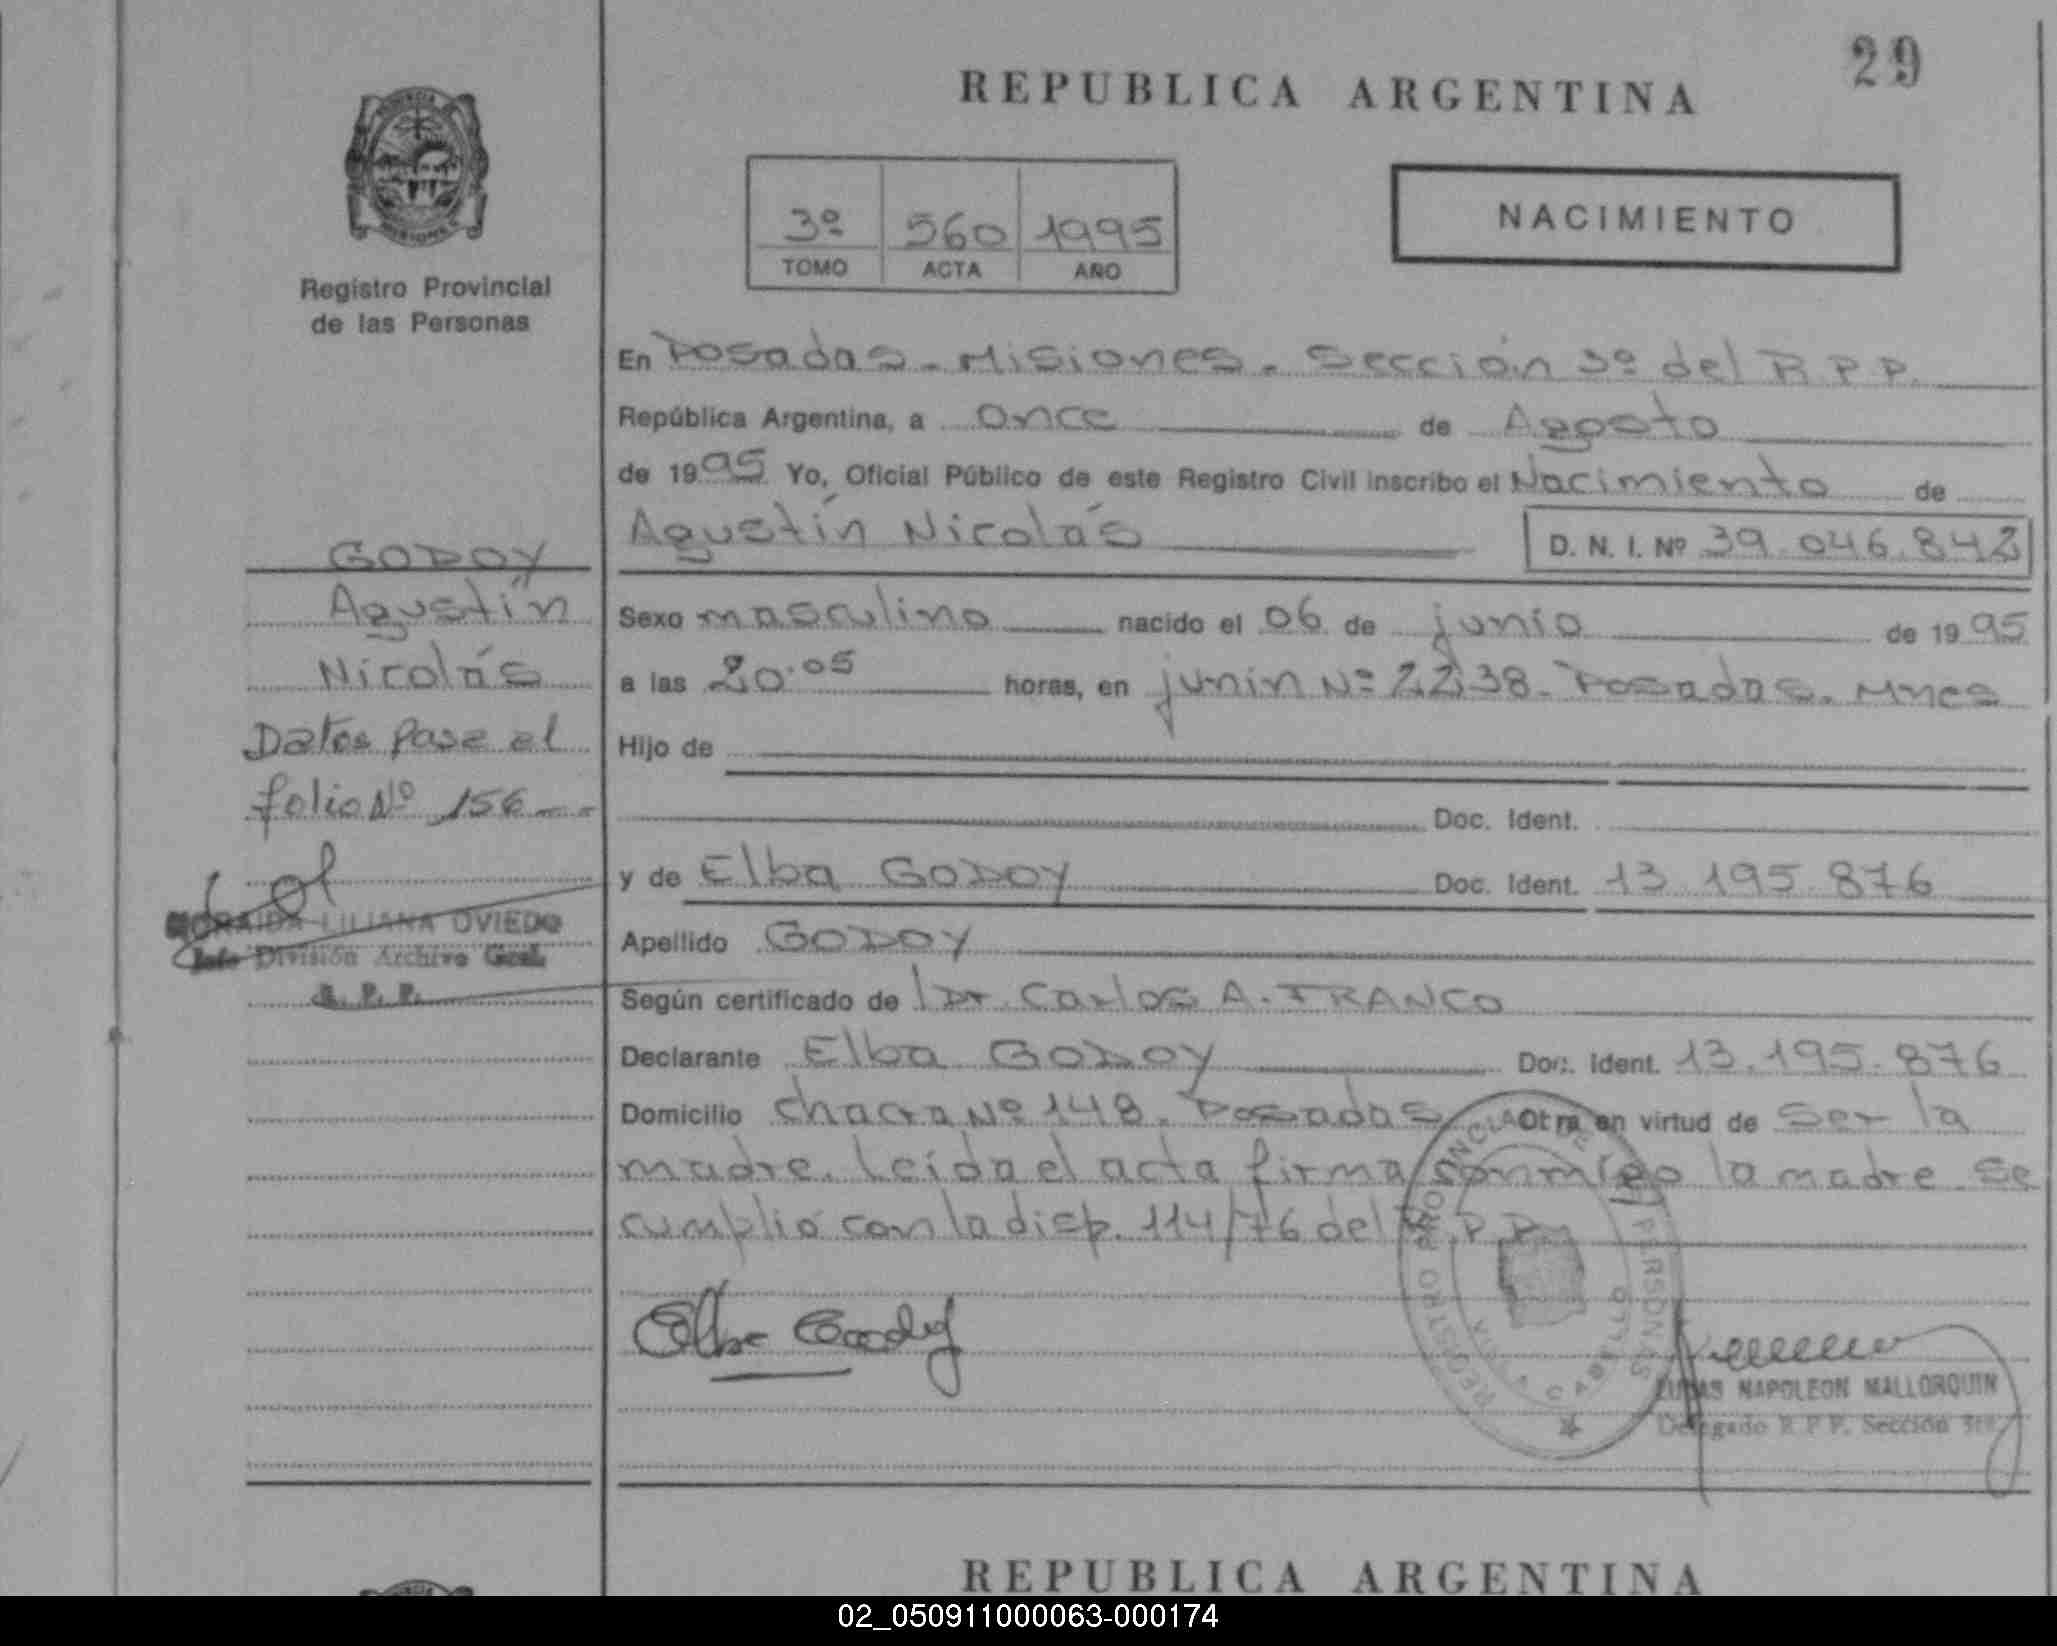 29
REPUBLICA ARGENTINA
PROVINCIA
MISIONES
Registro Provincial
de las Personas
3º 560 1995
TOMO ACTA AÑO
NACIMIENTO
En Posadas - Misiones. Sección 3º del R.P.P.
República Argentina, a once de Agosto
de 1995 Yo, Oficial Público de este Registro Civil inscribo el Nacimiento de
Agustín Nicolás D. N. I. Nº 39.046.842
Sexo masculino nacido el 06 de junio de 1995
a las 20.05 horas, en junin Nº 2238. Posadas. Mnes
Hijo de
Doc. Ident.
y de Elba GODOY Doc. Ident. 13 195 876
Apellido GODOY
Según certificado de Dr. Carlos A. FRANCO
Declarante Elba GODOY Doc. Ident. 13.195.876
Domicilio chacra Nº 148. Posadas Otra en virtud de ser la
madre. Leída el acta firma conmigo la madre se
cumplió con la disp. 114/76 del R.P.P.
GODOY
Agustín
Nicolás
Datos Pase al
folio Nº 156
LILIANA OVIEDO
Jefe División Archivo Gral.
R. P. P.
Elba Godoy
REGISTRO PROVINCIAL DE PERSONAS
VILLA CABELLO
LUCAS NAPOLEON MALLORQUIN
Delegado R P P. Sección 3ra.
REPUBLICA ARGENTINA
02_050911000063-000174